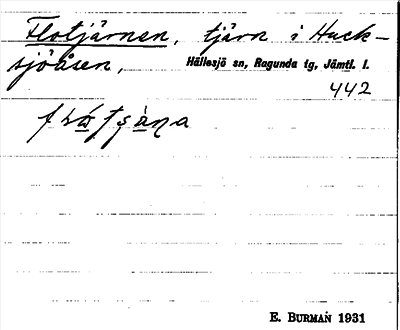 Flotjärnen, tjärn i Huck-
sjöåsen, Hällesjö sn, Ragunda tg, Jämtl. l.
442
E. BURMAN 1931